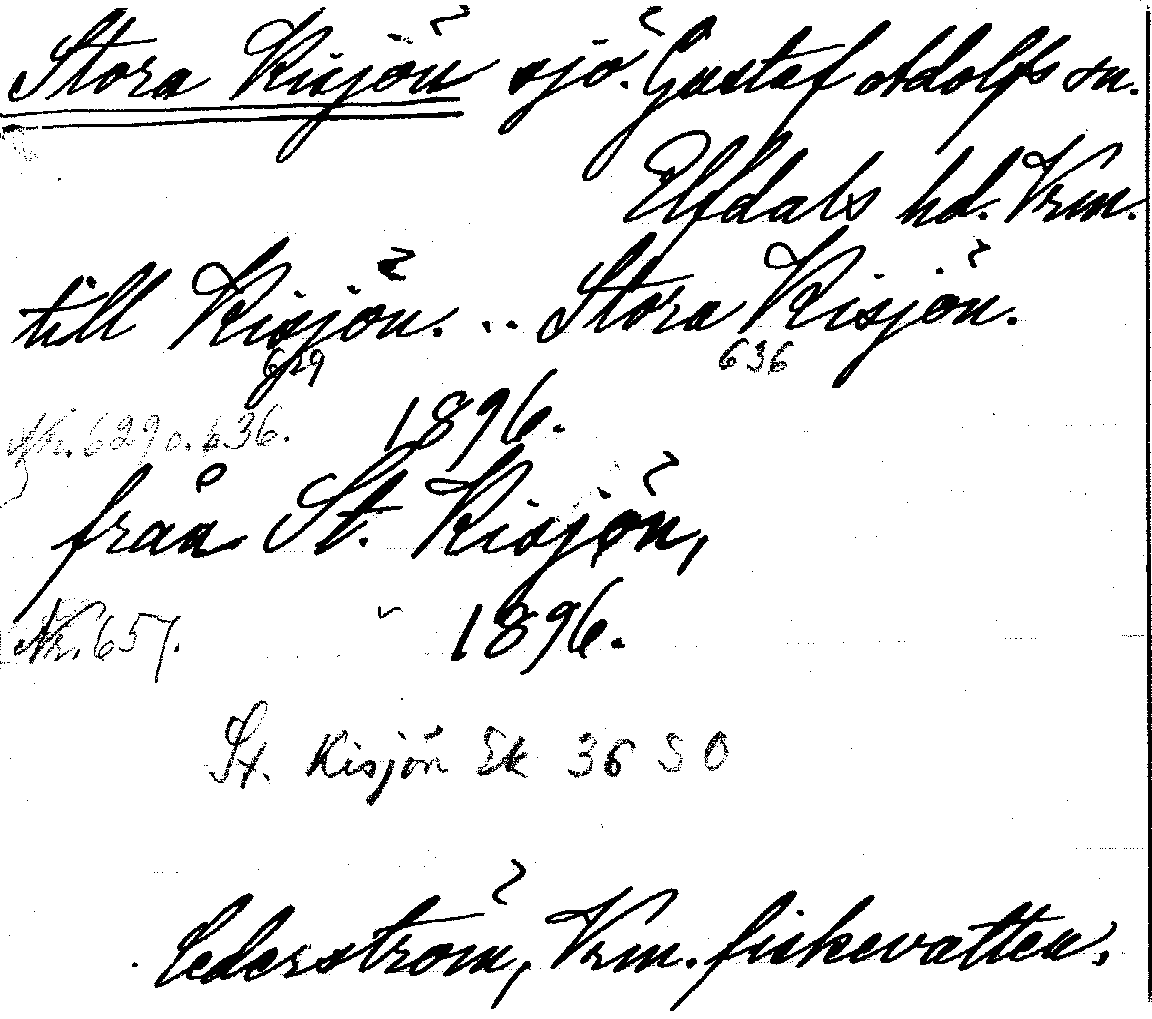 Stora Kisjön sjö. Gustaf Adolfs sn.
Elfdals hd. Vrm.
till Kisjön. .. Stora Kisjön.
629 636
Nr. 629 o. 636. 1896.
från St. Kisjön,
Nr. 657. 1896.
St. Kisjön Ek 36 SO
Cederström, Vrm. fiskevatten.